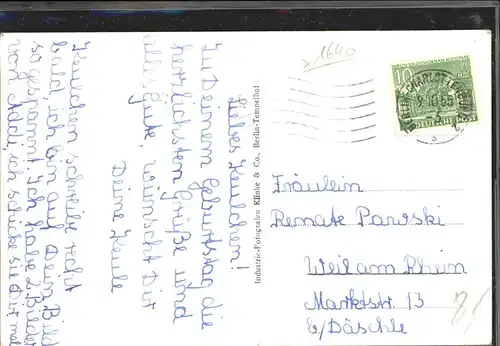 Liebes Keulchen!
Zu Deinem Geburtstag die
herzlichsten Grüße und
alles Gute, wünscht Dir
Deine Keule
Keulchen schreibe recht
bald, ich bin auf Dein Bild
so gespannt! Ich habe 2 Bilder
von Addi, ich schicke sie Dir mal
Industrie-Fotografen Klinke & Co., Berlin-Tempelhof
x1640
10
BERLIN-CHARLOTTENBURG
9.10.55
2
Fräulein
Renate Parrski
Weil am Rhein
Marktstr. 13
b/Däschle
8/